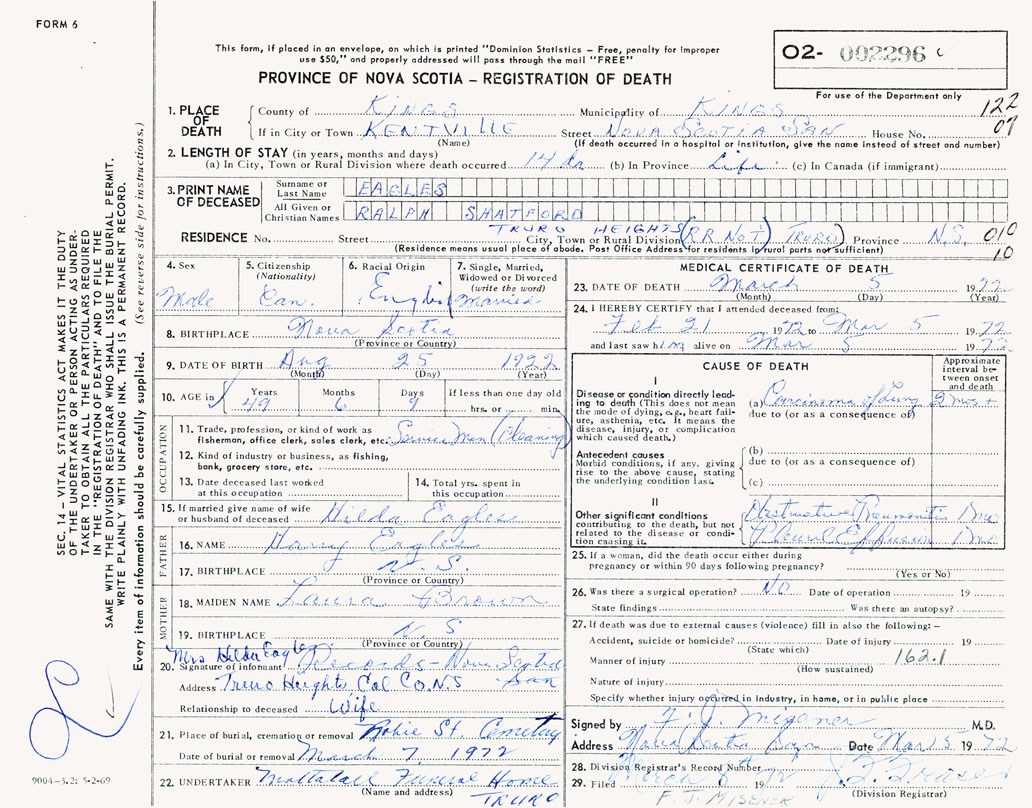 FORM 6
This form, if placed in an envelope, on which is printed "Dominion Statistics - Free, penalty for improper
use $50," and properly addressed will pass through the mail "FREE"
PROVINCE OF NOVA SCOTIA - REGISTRATION OF DEATH
O2- 002296
For use of the Department only
122
07
1. PLACE OF DEATH
County of KINGS Municipality of KINGS
If in City or Town KENTVILLE Street NOVA SCOTIA SAN House No.
(Name) (If death occurred in a hospital or institution, give the name instead of street and number)
2. LENGTH OF STAY (in years, months and days)
(a) In City, Town or Rural Division where death occurred 14 da (b) In Province Life (c) In Canada (if immigrant)
3. PRINT NAME OF DECEASED
Surname or Last Name EAGLES
All Given or Christian Names RALPH SHATFORD
TRURO HEIGHTS
RESIDENCE No. Street City, Town or Rural Division (RR No 1 TRURO) Province N.S. 010
(Residence means usual place of abode. Post Office Address for residents in rural parts not sufficient)
10
4. Sex Male
5. Citizenship (Nationality) Can.
6. Racial Origin English
7. Single, Married, Widowed or Divorced (write the word) Married
8. BIRTHPLACE Nova Scotia
(Province or Country)
9. DATE OF BIRTH Aug 25 1922
(Month) (Day) (Year)
10. AGE in Years 49 Months 6 Days 9 if less than one day old
hrs. or min.
OCCUPATION
11. Trade, profession, or kind of work as
fisherman, office clerk, sales clerk, etc. Service Man (Cleaning)
12. Kind of industry or business, as fishing,
bank, grocery store, etc.
13. Date deceased last worked
at this occupation
14. Total yrs. spent in
this occupation
15. If married give name of wife
or husband of deceased Hilda Eagles
FATHER
16. NAME Harry Eagles
17. BIRTHPLACE N.S.
(Province or Country)
MOTHER
18. MAIDEN NAME Laura Brown
19. BIRTHPLACE N.S
(Province or Country)
Mrs Hilda Eagles
20. Signature of informant Records - Nova Scotia San
Address Truro Heights Col Co. N.S
Relationship to deceased Wife
21. Place of burial, cremation or removal Robie St. Cemetery
Date of burial or removal March 7 1972
22. UNDERTAKER Mattatall Funeral Home
(Name and address) TRURO
MEDICAL CERTIFICATE OF DEATH
23. DATE OF DEATH March 5 1972
(Month) (Day) (Year)
24. I HEREBY CERTIFY that I attended deceased from:
Feb 21 1972 to Mar 5 1972
and last saw him alive on Mar 5 1972
CAUSE OF DEATH
Approximate interval between onset and death
I
Disease or condition directly leading to death (This does not mean the mode of dying, e.g., heart failure, asthenia, etc. It means the disease, injury, or complication which caused death.)
(a) Carcinoma of Lung 2 mos +
due to (or as a consequence of)
Antecedent causes
Morbid conditions, if any, giving rise to the above cause, stating the underlying condition last.
(b)
due to (or as a consequence of)
(c)
II
Other significant conditions
contributing to the death, but not related to the disease or condition causing it.
Obstructive Pneumonitis 1 mo
Pleural Effusion 1 mo
25. If a woman, did the death occur either during
pregnancy or within 90 days following pregnancy?
(Yes or No)
26. Was there a surgical operation? No Date of operation 19
State findings Was there an autopsy?
27. If death was due to external causes (violence) fill in also the following: -
Accident, suicide or homicide? Date of injury 19
(State which)
Manner of injury 162.1
(How sustained)
Nature of injury
Specify whether injury occurred in industry, in home, or in public place
Signed by F. J. Misener M.D.
Address Nova Scotia Date Mar 5 1972
28. Division Registrar's Record Number
29. Filed March 8 1972 Fraser
F. J. MISENER (Division Registrar)
SEC. 14 - VITAL STATISTICS ACT MAKES IT THE DUTY
OF THE UNDERTAKER OR PERSON ACTING AS UNDER-
TAKER TO OBTAIN ALL THE PARTICULARS REQUIRED
IN THE "REGISTRATION OF EATH" AND TO FILE THE
SAME WITH THE DIVISION REGISTRAR WHO SHALL ISSUE THE BURIAL PERMIT.
WRITE PLAINLY WITH UNFADING INK. THIS IS A PERMANENT RECORD.
Every item of information should be carefully supplied. (See reverse side for instructions.)
9004-3.2: 5-2-69